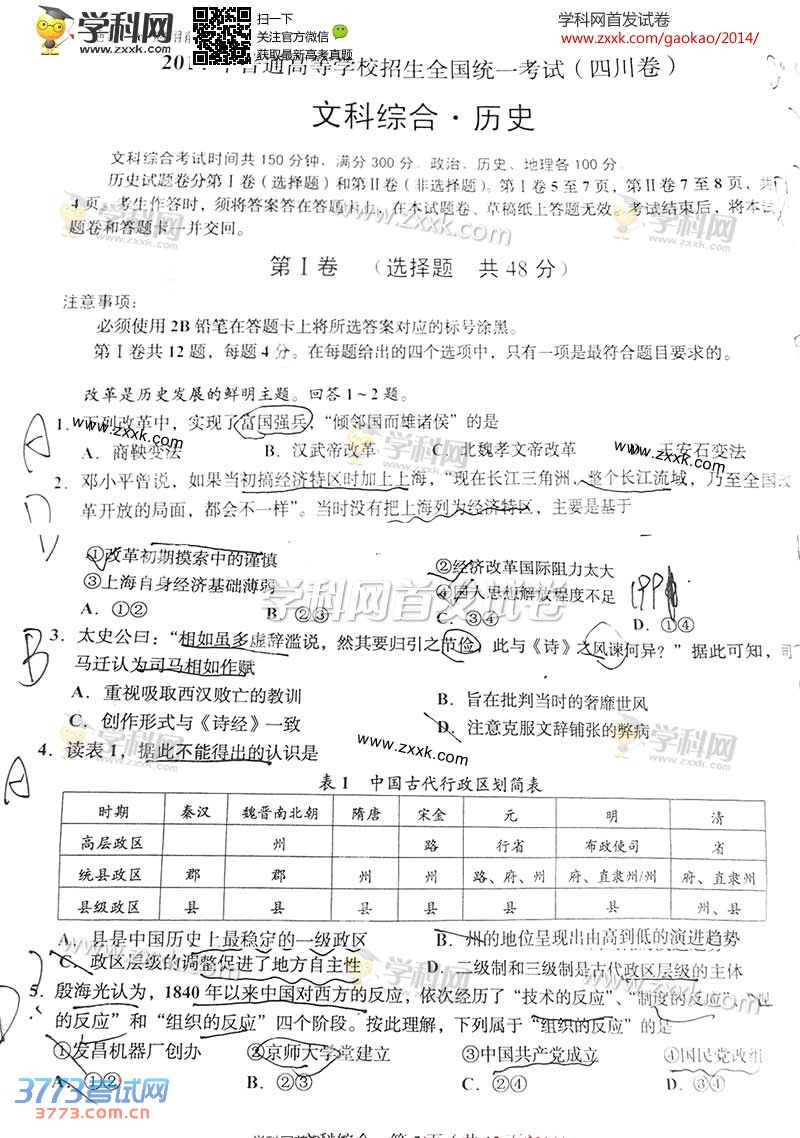 学科网
www.zxxk.com
扫一下
关注官方微信
获取最新高考真题
学科网首发试卷
www.zxxk.com/gaokao/2014/
普通高等学校招生全国统一考试(四川卷)
文科综合·历史
文科综合考试时间共150分钟,满分300分。政治、历史、地理各100分
历史试题卷分第Ⅰ卷(选择题)和第Ⅱ卷(非选择题)。第Ⅰ卷5至7页,第Ⅱ卷7至8页,共
4页。考生作答时,须将答案答在答题卡上,在本试题卷、草稿纸上答题无效。考试结束后,将本试
题卷和答题卡一并交回。
第Ⅰ卷 (选择题 共48分)
注意事项:
必须使用2B铅笔在答题卡上将所选答案对应的标号涂黑。
第Ⅰ卷共12题,每题4分。在每题给出的四个选项中,只有一项是最符合题目要求的。
改革是历史发展的鲜明主题。回答1~2题。
A
1.下列改革中,实现了富国强兵,“倾邻国而雄诸侯”的是
A.商鞅变法 B.汉武帝改革 C.北魏孝文帝改革 王安石变法
D
2.邓小平曾说,如果当初搞经济特区时加上上海,“现在长江三角洲,整个长江流域,乃至全国改
革开放的局面,都会不一样”。当时没有把上海列为经济特区,主要是基于
①改革初期摸索中的谨慎 ②经济改革国际阻力太大
③上海自身经济基础薄弱 ④国人思想解放程度不足
A.①② B.②③ C.③④ D.①④
B
3.太史公曰:“相如虽多虚辞滥说,然其要归引之节俭,此与《诗》之风谏何异?”据此可知,司
马迁认为司马相如作赋
A.重视吸取西汉败亡的教训 B.旨在批判当时的奢靡世风
C.创作形式与《诗经》一致 D.注意克服文辞铺张的弊病
4.读表1,据此不能得出的认识是
表1 中国古代行政区划简表
时期 秦汉 魏晋南北朝 隋唐 宋金 元 明 清
高层政区 州 路 行省 布政使司 省
统县政区 郡 郡 州 州 路、府、州 府、直隶州/州 府、直隶州
县级政区 县 县 县 县 县 县 州、县
A.县是中国历史上最稳定的一级政区 B.州的地位呈现出由高到低的演进趋势
C.政区层级的调整促进了地方自主性 D.二级制和三级制是古代政区层级的主体
5.殷海光认为,1840年以来中国对西方的反应,依次经历了“技术的反应”、“制度的反应”、“
的反应”和“组织的反应”四个阶段。按此理解,下列属于“组织的反应”的是
①发昌机器厂创办 ②京师大学堂建立 ③中国共产党成立 ④国民党改组
A.①② B.②③ C.②④ D.③④
3773考试网
3773.com.cn